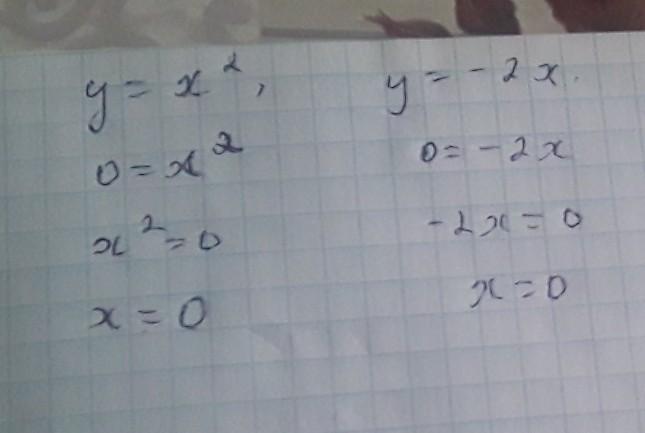 y = x², y = -2x.
0 = x² 0 = -2x
x² = 0 -2x = 0
x = 0 x = 0